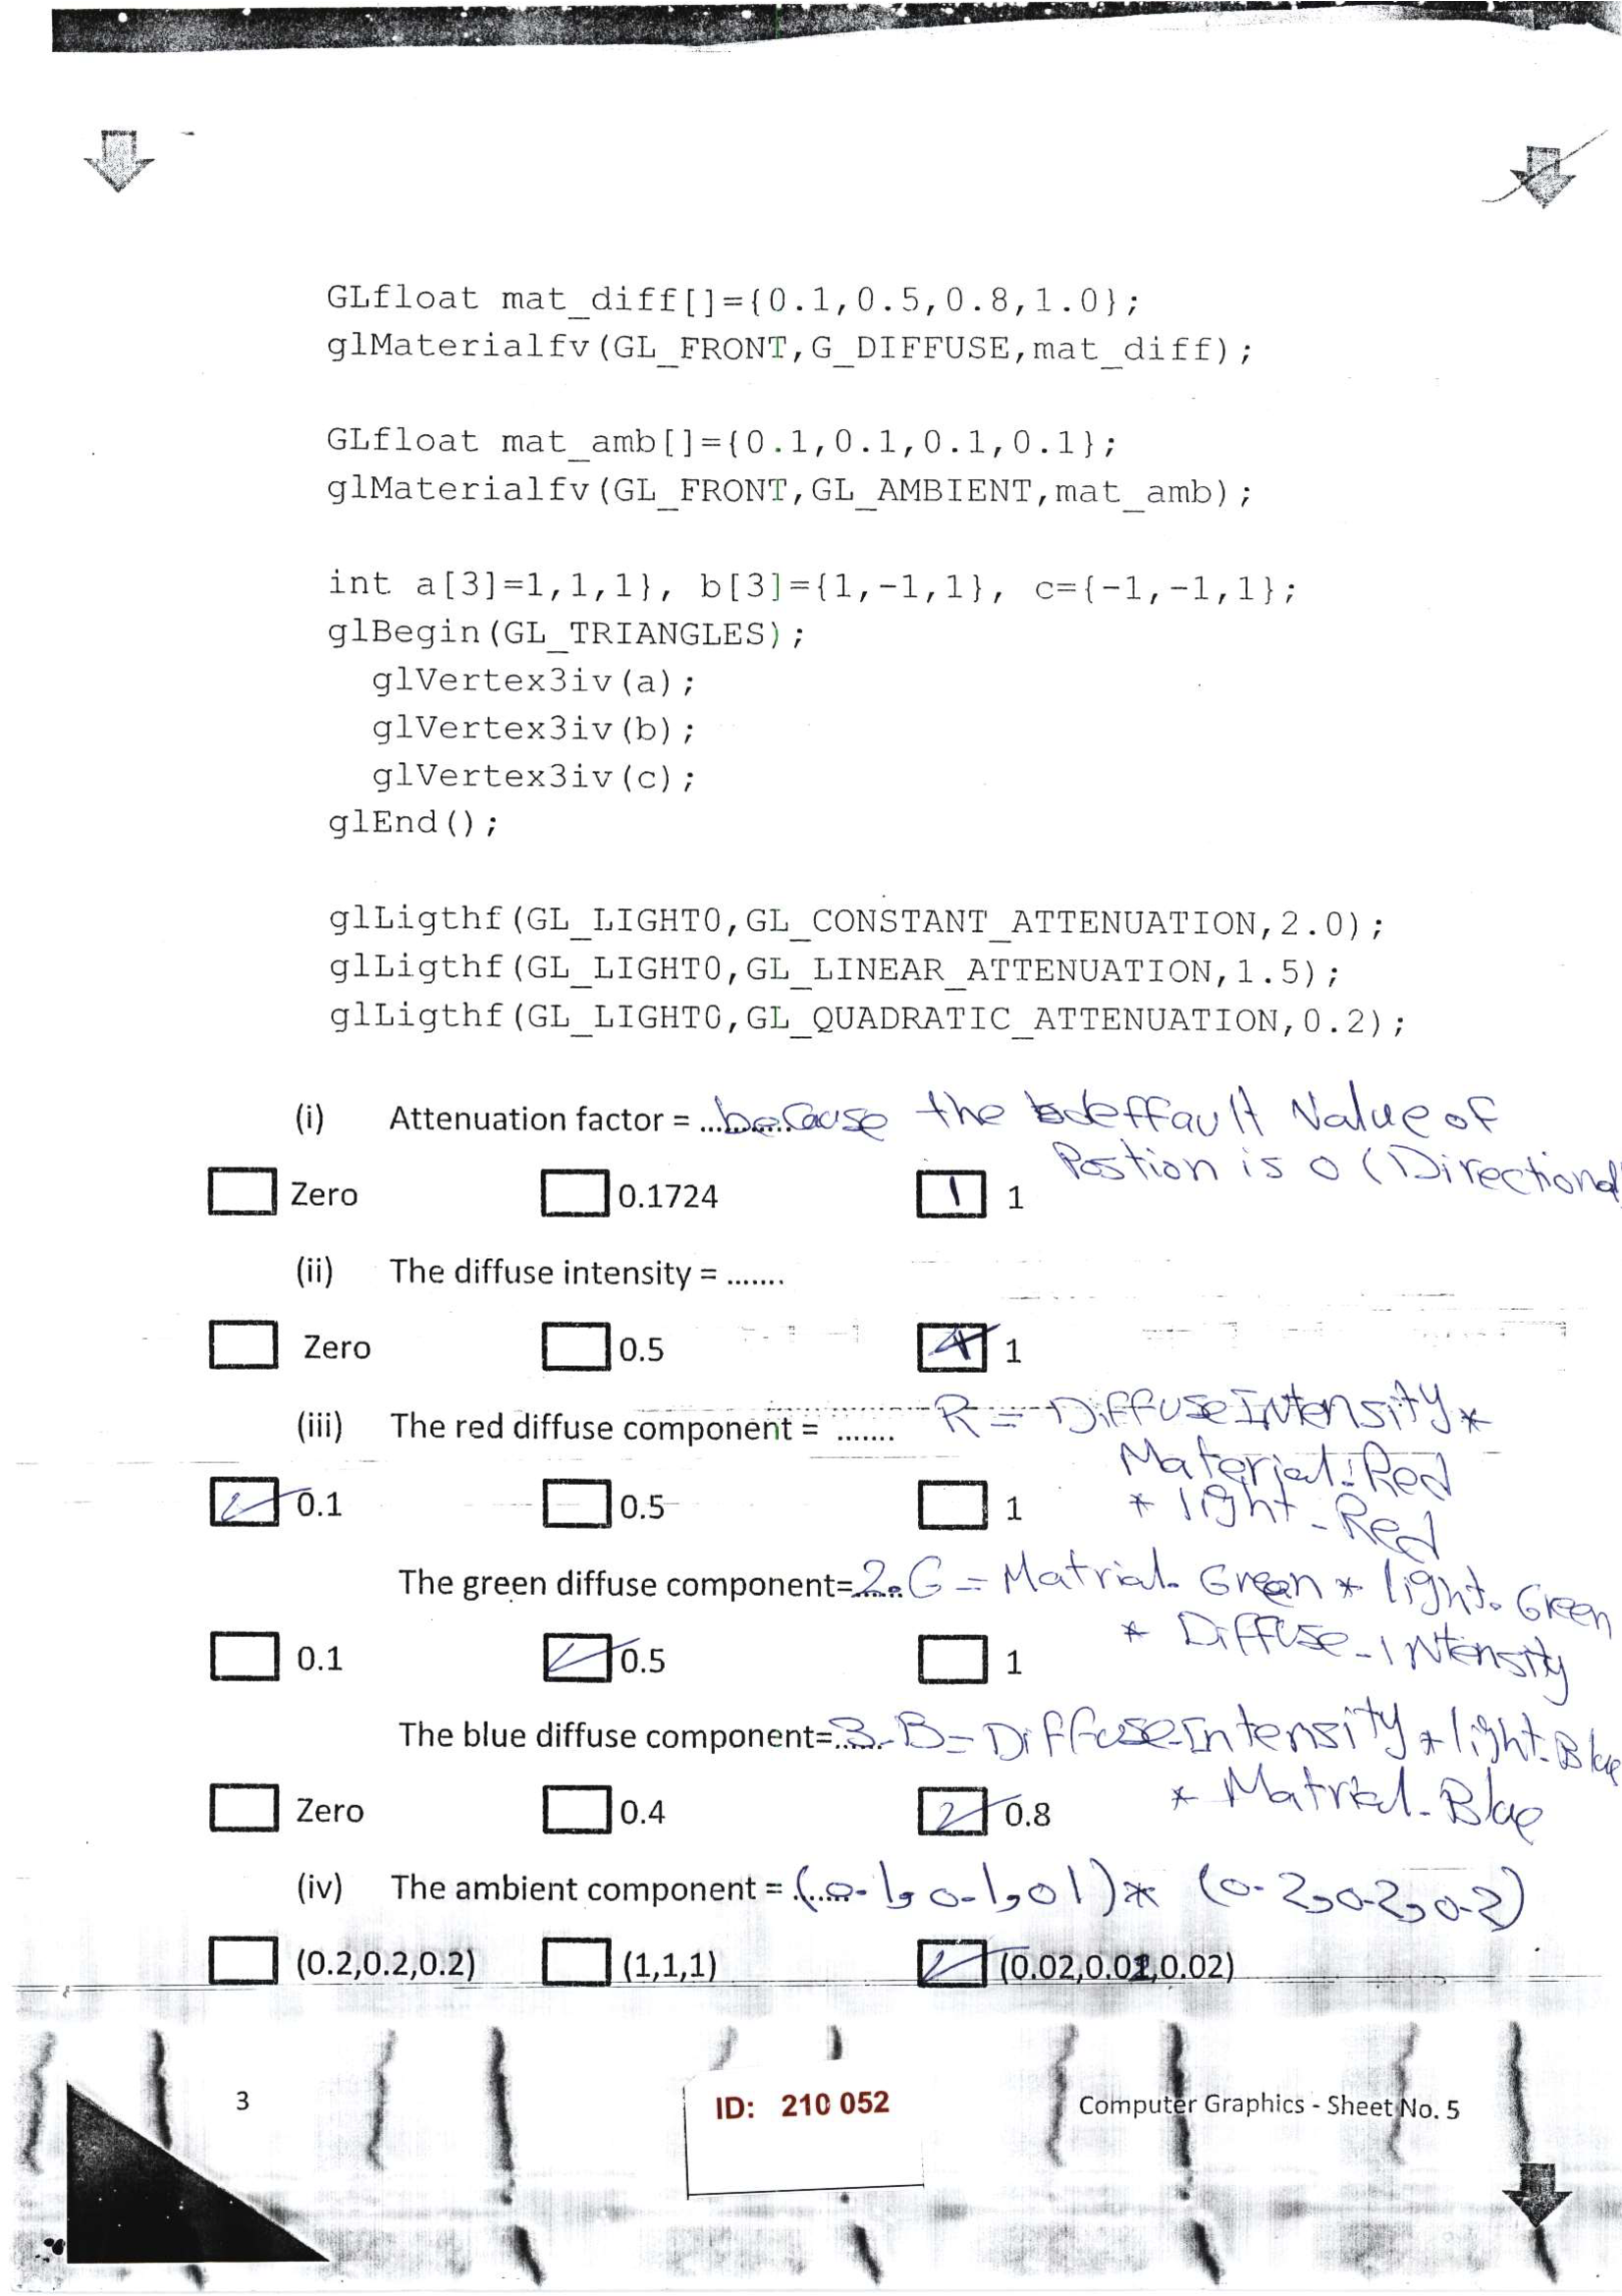 GLfloat mat_diff[]={0.1,0.5,0.8,1.0};
glMaterialfv(GL_FRONT,G_DIFFUSE,mat_diff);
GLfloat mat_amb[]={0.1,0.1,0.1,0.1};
glMaterialfv(GL_FRONT,GL_AMBIENT,mat_amb);
int a[3]=1,1,1}, b[3]={1,-1,1}, c={-1,-1,1};
glBegin(GL_TRIANGLES);
glVertex3iv(a);
glVertex3iv(b);
glVertex3iv(c);
glEnd();
glLigthf(GL_LIGHT0,GL_CONSTANT_ATTENUATION,2.0);
glLigthf(GL_LIGHT0,GL_LINEAR_ATTENUATION,1.5);
glLigthf(GL_LIGHT0,GL_QUADRATIC_ATTENUATION,0.2);
(i) Attenuation factor = ........... because the deffault Value of
Postion is 0 (Directional
Zero 0.1724 1
(ii) The diffuse intensity = .......
Zero 0.5 1
(iii) The red diffuse component = ....... R = Diffuse Intensity *
Material_Red
* light_Red
0.1 0.5 1
The green diffuse component=...... 2. G = Matrial_Green * light_Green
* Diffuse_Intensity
0.1 0.5 1
The blue diffuse component=...... 3-B = Diffuse_Intensity * light_Blue
* Matrial_Blue
Zero 0.4 0.8
(iv) The ambient component = ....... (0.1,0.1,01) * (0.2,0.2,0.2)
(0.2,0.2,0.2) (1,1,1) (0.02,0.02,0.02)
3
ID: 210 052
Computer Graphics - Sheet No. 5